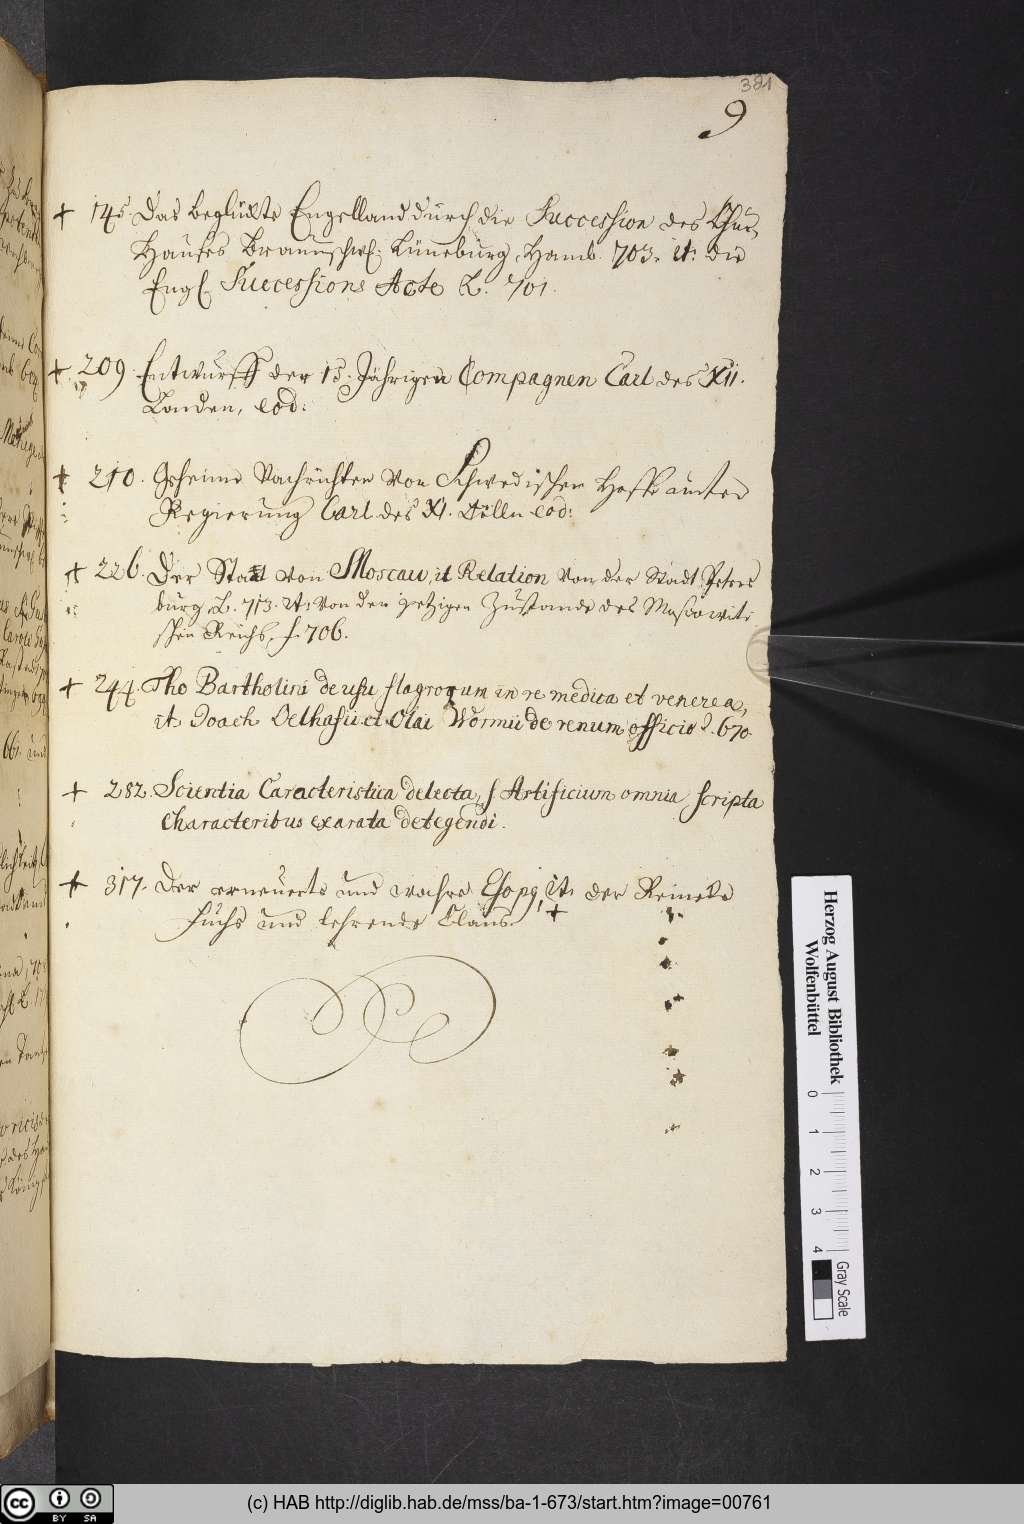 381
9
+ 145. Das beglückte Engelland durch die Succession des Chur-
Hauses Braunschw: Lüneburg, Hamb. 703. it: die
Engl. Successions Acte L. 701.
+ 209. Entwurff der 15. Jährigen Compagnen Carl des XII.
Londen, eod:
+ 210. Geheime Nachrichten von Schwedischen Hoffe unter
Regierung Carl des XI. Cölln eod:
+ 226. Der Staat von Moscau, it Relation von der Stadt Peters
burg, L. 713. it: von den jetzigen Zustande des Moscowiti-
schen Reichs, f. 706.
+ 244. Tho Bartholini de usu flagrorum in re medica et venerea,
it Joach Olhafii et Olai Wormii de renum officio 670.
+ 282. Scientia Caracteristica detecta, s Artificium omnia scripta
Characteribus exarata detegendi.
+ 317. Der erneuerte und wahre Esopq, it: der Reineke
Fuchs und lehrende Claus. +
Herzog August Bibliothek
Wolfenbüttel
0 1 2 3 4
Gray Scale
CC BY SA
(c) HAB http://diglib.hab.de/mss/ba-1-673/start.htm?image=00761